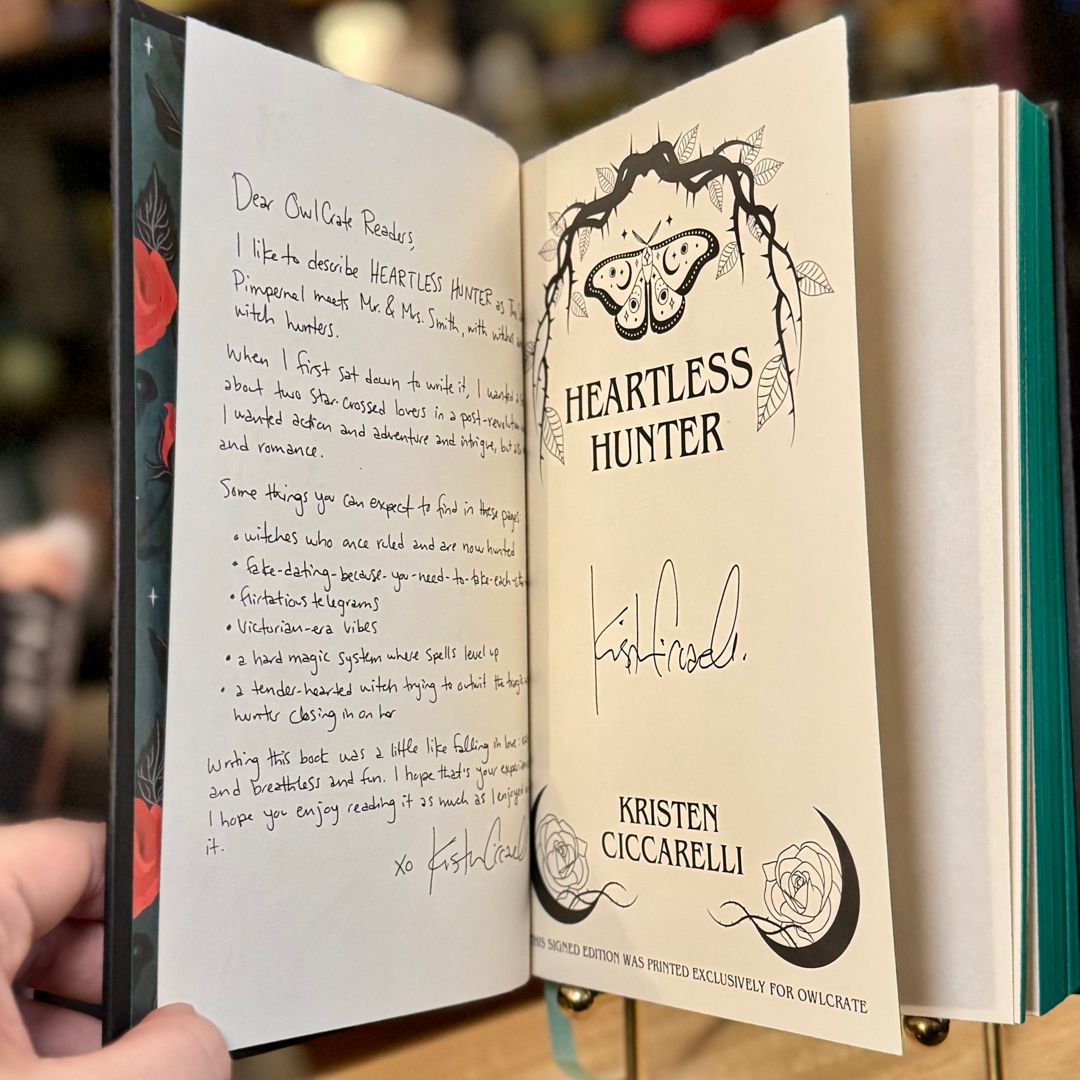 Dear OwlCrate Readers,
I like to describe HEARTLESS HUNTER as The
Pimpernel meets Mr. & Mrs. Smith, with witches
witch hunters.
When I first sat down to write it, I wanted a
about two star-crossed lovers in a post-revolution
I wanted action and adventure and intrigue, but
and romance.
Some things you can expect to find in these pages:
• witches who once ruled and are now hunted
• fake-dating-because-you-need-to-fake-each-
• flirtatious telegrams
• Victorian-era vibes
• a hard magic system where spells level up
• a tender-hearted witch trying to outwit the
hunter closing in on her
Writing this book was a little like falling in love:
and breathless and fun. I hope that's your
I hope you enjoy reading it as much as I enjoyed
it.
xo
HEARTLESS
HUNTER
KRISTEN
CICCARELLI
THIS SIGNED EDITION WAS PRINTED EXCLUSIVELY FOR OWLCRATE